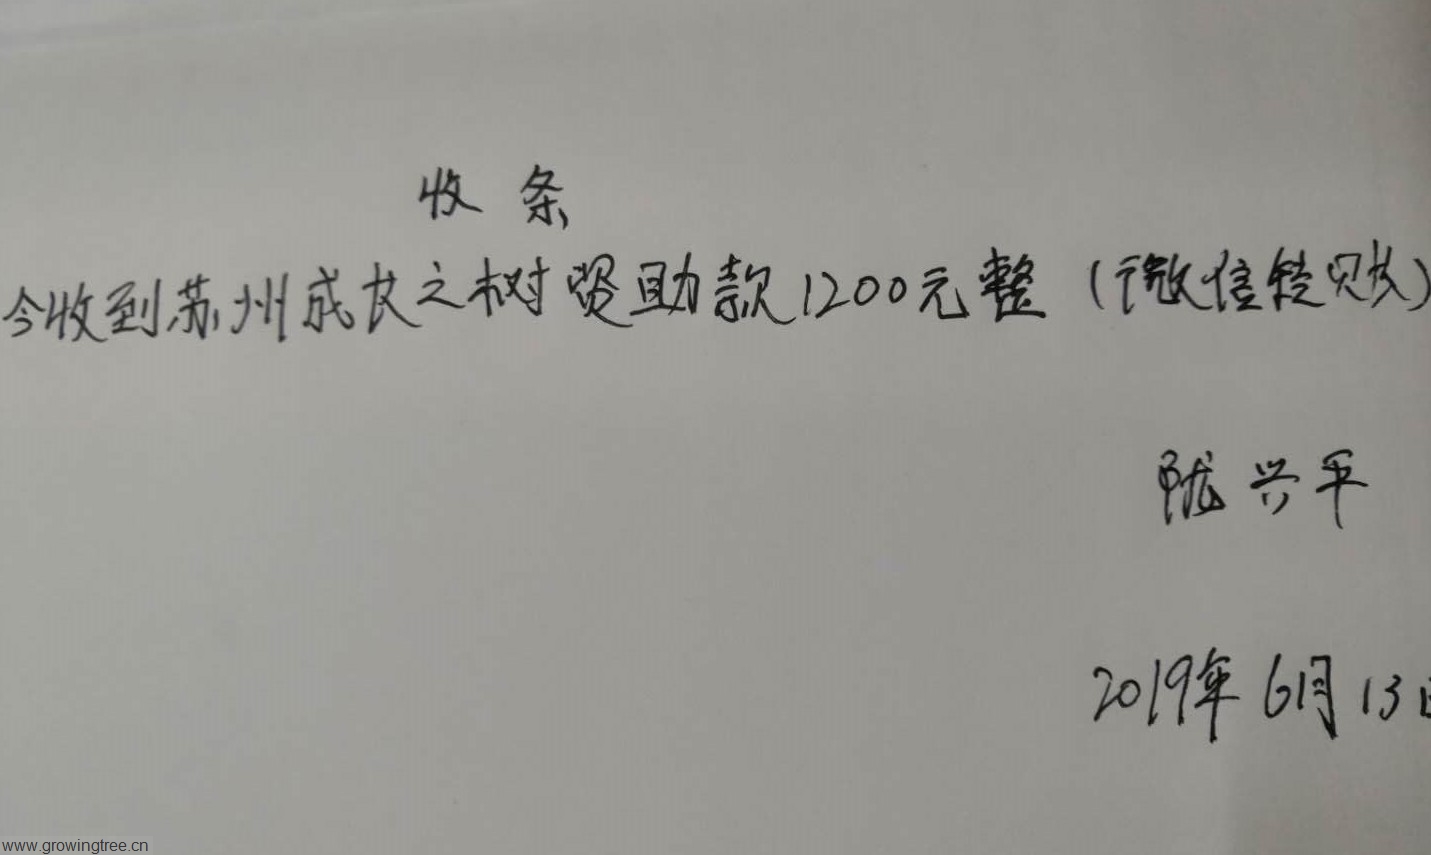 收条
今收到苏州成长之树资助款1200元整（微信转账）
陇兴平
2019年6月13日
www.growingtree.cn